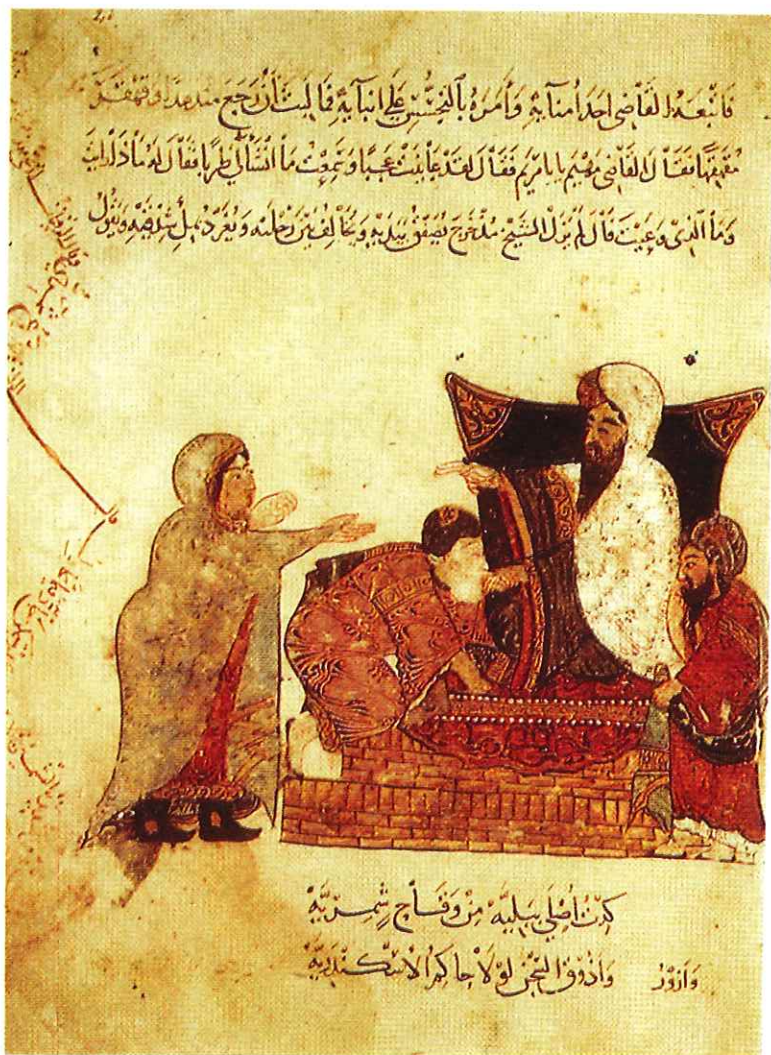 فَاتْبَعَهُ القَاضى احَدَ اُمنآيهِ وَأَمَرَهُ بِالتَجسُّسِ عَلَى انبآيهِ فَمَا لَبِثَ أَنْ رَجَعَ متدهدهًا وقَهقَرَ
مُقَهقِهًا فَقَالَ القَاضى مَهيَم يا با مَريَم فَقَالَ لَقَد عَايَنتُ عَجَبًا وَسَمِعتُ مَا انشَأَ لى طَرَبًا فقَالَ لَهُ مَاذَا رايتَ
وَمَا الَّذى وَعَيتَ قَالَ لَم يَزَل الشَيخُ مُذ خَرَجَ يُصَفِّقُ بِيَدَيهِ وَيخَالِفُ بَينَ رِجلَيه وَيُغَرِّدُ بمِلءِ شِدقَيهِ وَيَقُولُ
كِدتُ أصلَى بِبَليَّه مِن وَقَاحٍ شَمَّريَّه
وَازُوْرُ وَاذُوقُ السِّجنَ لَوْلَا حَاكِمُ الاسْكَندَريَّه